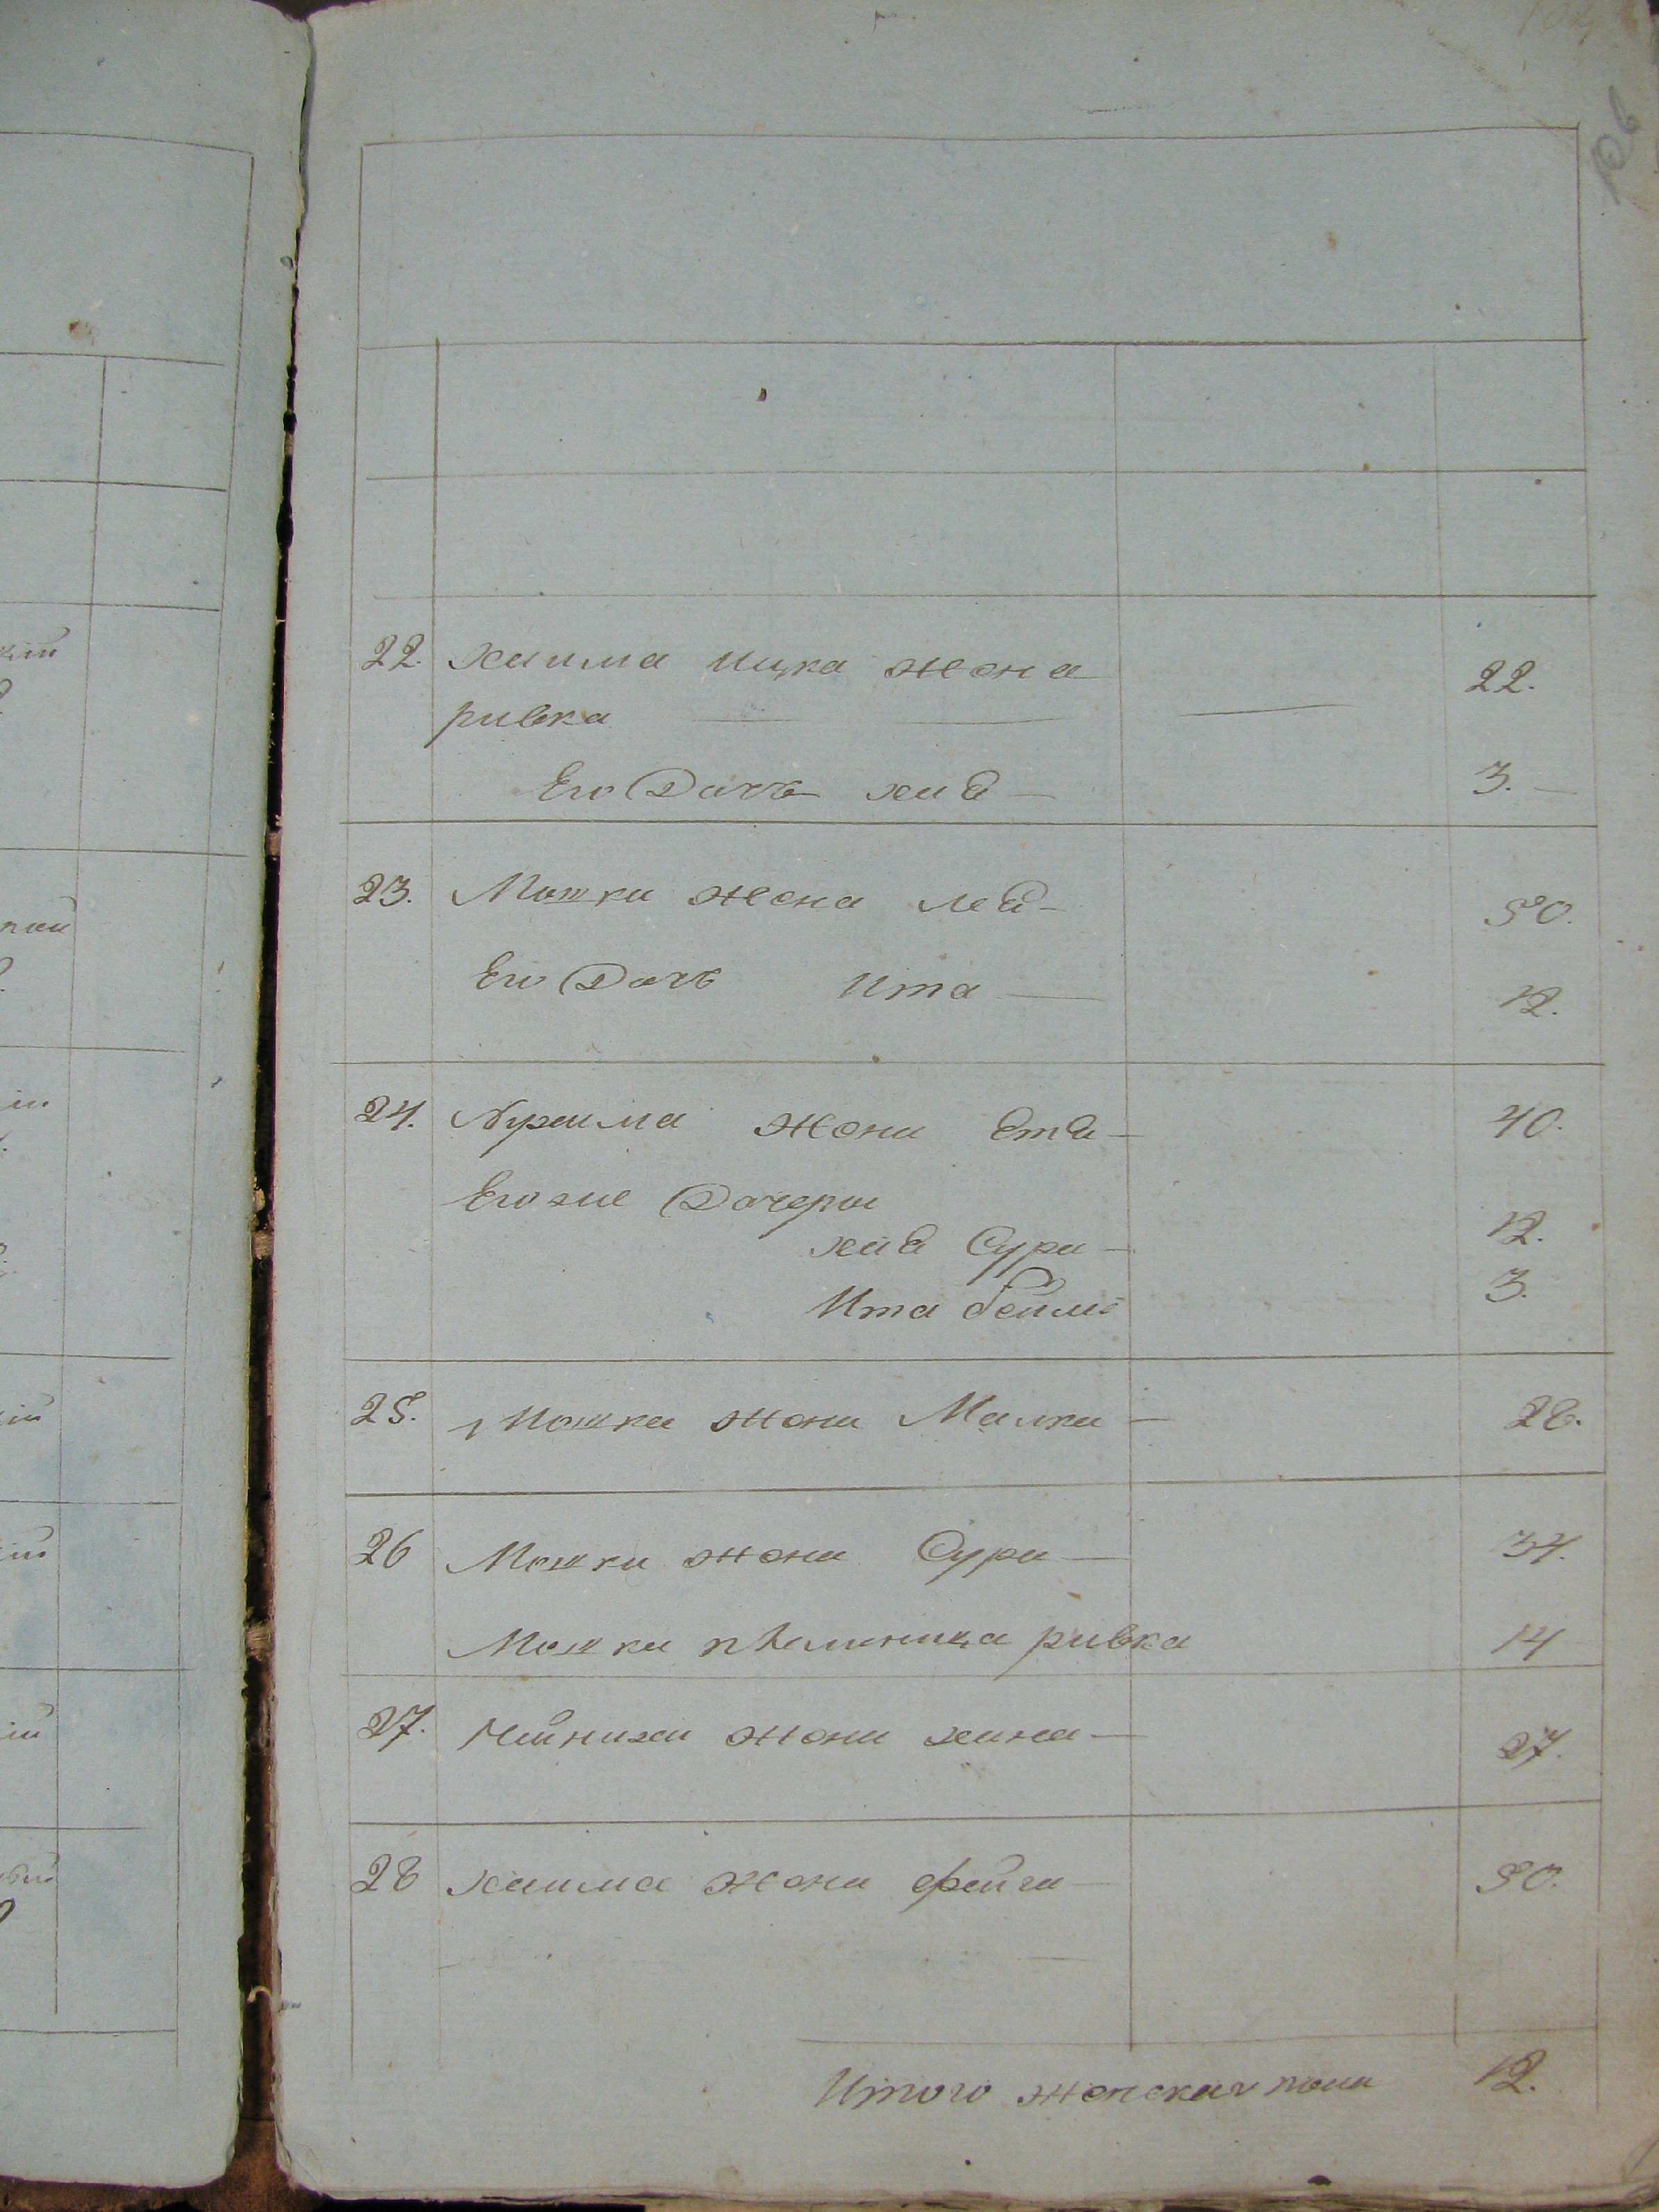 106
22. хаима ицка жена 22.
ривка
Его Дочь хая 3.
23. Мошки жена лея 50.
Его Дочь Ита 12.
24. Архима жена Етя 40.
Егоже Дочеры
хая Сура 12.
Ита бейла 3.
25. Мошка жена Малка 28.
26 Мошки жена Сура 34.
Мошки пѣлменица ривка 14
27. жена хана 27.
28 хаима жена фейга 50.
Итого женскаго пола 12.